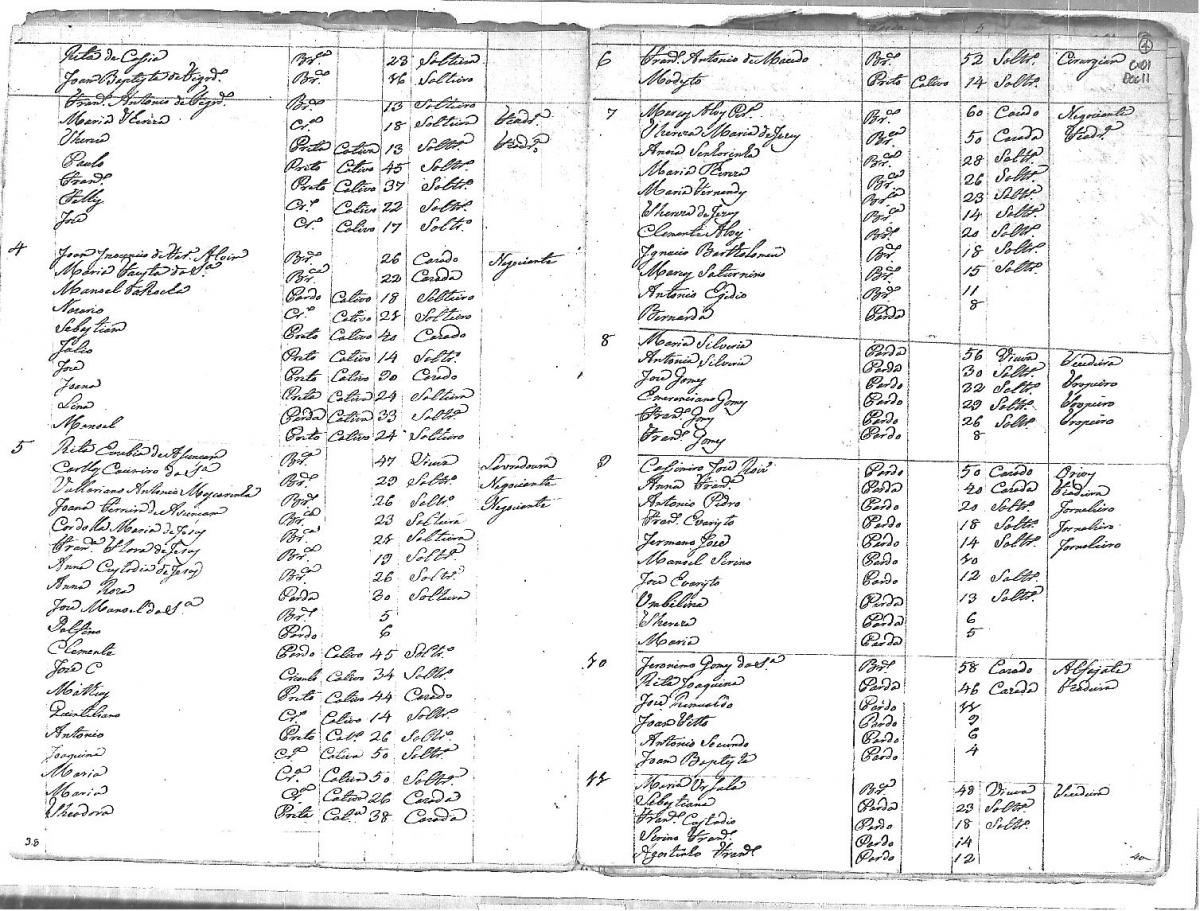 Rita de Casia Br.ᶜᵃ 23 Solteira
Joan Baptysta de Br.ᶜᵒ 16 Solteiro
Fran.ᶜᵒ Antonio de Br.ᶜᵒ 13 Solteiro
Maria Thereza Cr.ᵃ 18 Solteira Fiadr.ᵃ
Thereza Preta Cativa 13 Soltr.ᵃ Fiadr.ᵃ
Paulo Preto Cativo 45 Soltr.ᵒ
Fran.ᶜᵒ Preto Cativo 37 Soltr.ᵒ
Felly Cr.ᵒ Cativo 22 Soltr.ᵒ
José Cr.ᵒ Cativo 17 Soltr.ᵒ
4 Joan Br.ᶜᵒ 26 Cazado Negociante
Maria da S.ᵃ Br.ᶜᵃ 22 Cazada
Manoel Pardo Cativo 18 Solteiro
Nazario Cr.ᵒ Cativo 28 Solteiro
Sebastiam Preto Cativo 40 Cazado
Julio Preto Cativo 14 Soltr.ᵒ
José Preto Cativo 90 Cazado
Joana Preta Cativa 24 Solteira
Lina Parda Cativa 33 Soltr.ᵃ
Manoel Preto Cativo 24 Solteiro
5 Rita Euzebia de Asumcam Br.ᶜᵃ 47 Viuva Lavradoura
Carlos da S.ᵃ Br.ᶜᵒ 29 Soltr.ᵒ Negociante
Valeriano Antonio Mascarenha Br.ᶜᵒ 26 Solt.ᵒ Negociante
Joana Pereira de Asumcam Br.ᶜᵃ 23 Solteira
Cordolla Maria de Jesus Br.ᶜᵃ 28 Solteira
Fran.ᶜᵃ Flora de Jesus Br.ᶜᵃ 19 Soltr.ᵃ
Anna Custodia de Jesus Br.ᶜᵃ 26 Soltr.ᵃ
Anna Roza Parda 30 Solteira
José Manoel da S.ᵃ Br.ᶜᵒ 5
Delfino Pardo 6
Clemente Pardo Cativo 45 Soltr.ᵒ
José C Crioulo Cativo 34 Soltr.ᵒ
Mathias Preto Cativo 44 Cazado
Quintiliano Cr.ᵒ Cativo 14 Soltr.ᵒ
Antonio Preto Cat.ᵒ 26 Soltr.ᵒ
Joaquina Cr.ᵃ Cativa 50 Soltr.ᵃ
Maria Cr.ᵃ Cativa 50 Soltr.ᵃ
Maria Cr.ᵃ Cativa 26 Cazada
Theodora Preta Cat.ᵃ 38 Cazada
38
4
CX01
Doc 11
6 Fran.ᶜᵒ Antonio de Macedo Br.ᶜᵒ 52 Soltr.ᵒ Cirurgian
Modysto Preto Cativo 14 Soltr.ᵒ
7 Marcos Br.ᶜᵒ 60 Cazado Negociante
Thereza Maria de Jesus Br.ᶜᵃ 50 Cazada Fiadr.ᵃ
Anna Senhorinha Br.ᶜᵃ 28 Soltr.ᵃ
Maria Thereza Br.ᶜᵃ 26 Soltr.ᵃ
Maria Fernandes Br.ᶜᵃ 23 Soltr.ᵃ
Thereza de Jesus Br.ᶜᵃ 14 Soltr.ᵃ
Clemente Br.ᶜᵒ 20 Soltr.ᵒ
Ignacio Bartholomeu Br.ᶜᵒ 18 Soltr.ᵒ
Marcos Saturnino Br.ᶜᵒ 15 Soltr.ᵒ
Antonio Egidio Br.ᶜᵒ 11
Bernarda Parda 8
8 Maria Silveria Parda 56 Viuva Fiadeira
Antonia Silveria Parda 30 Soltr.ᵃ
José Gomes Pardo 32 Soltr.ᵒ Tropeiro
Emerenciano Gomes Pardo 29 Soltr.ᵒ Tropeiro
Fran.ᶜᵒ Gomes Pardo 26 Soltr.ᵒ Tropeiro
Fran.ᶜᵒ Gomes Pardo 8
9 Casimiro José Pardo 50 Cazado Orives
Anna Fran.ᶜᵃ Parda 40 Cazada Fiadeira
Antonio Pedro Pardo 20 Soltr.ᵒ Jornaleiro
Fran.ᶜᵒ Evaristo Pardo 18 Soltr.ᵒ Jornaleiro
Jermano José Pardo 14 Soltr.ᵒ Jornaleiro
Manoel Serino Pardo 10
José Evaristo Pardo 12 Soltr.ᵒ
Umbilina Parda 13 Soltr.ᵃ
Thereza Parda 6
Maria Parda 5
10 Jeronimo Gomes da S.ᵃ Br.ᶜᵒ 58 Cazado Alfajate
Rita Joaquina Parda 46 Cazada Fiadeira
José Romualdo Pardo 11
Joan Pardo 9
Antonio Secundo Pardo 6
Joan Baptysta Pardo 4
11 Maria Ursula Br.ᶜᵃ 48 Viuva Fiadeira
Sebastiana Parda 23 Soltr.ᵃ
Fran.ᶜᵒ Custodio Pardo 18 Soltr.ᵒ
Serino Fran.ᶜᵒ Pardo 14
Agostinho Fran.ᶜᵒ Pardo 12
40